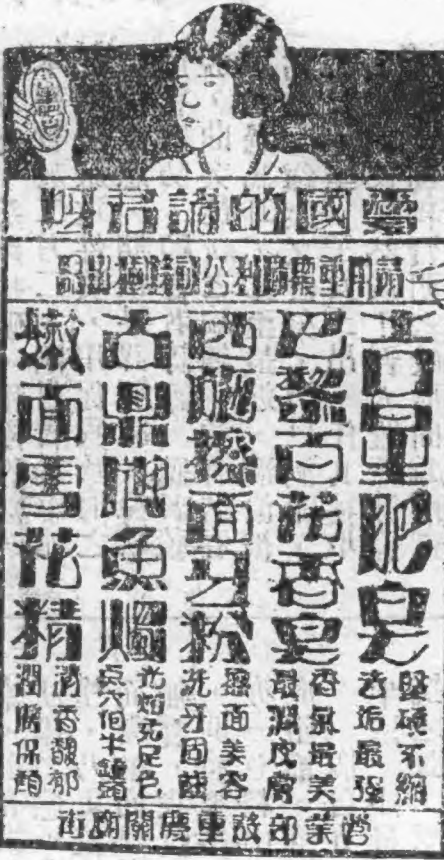 愛國的諸君呵
請用重慶利公司特種出品
吉星肥皂
堅硬不縮
去垢最強
巴黎百花香皂
香氣最美
最潤皮膚
西施擦面牙粉
擦面美容
洗牙固齒
古鼎牌魚燭
光焰充足色
點六個半鐘頭
嫩面雪花精
清香馥郁
潤膚保顏
營業部設重慶關廟街